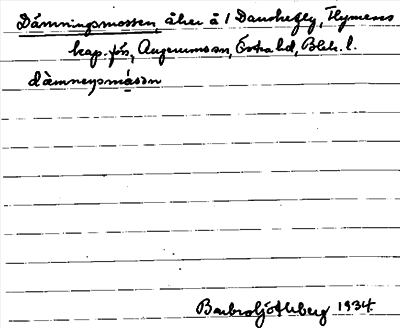 Dämningsmossen, åker å 1 Danskefly, Flymens
kap. förs, Augerums sn, Östra hd, Blek. l.
dämneŋsmåsən
Barbro Ljöthberg 1934.